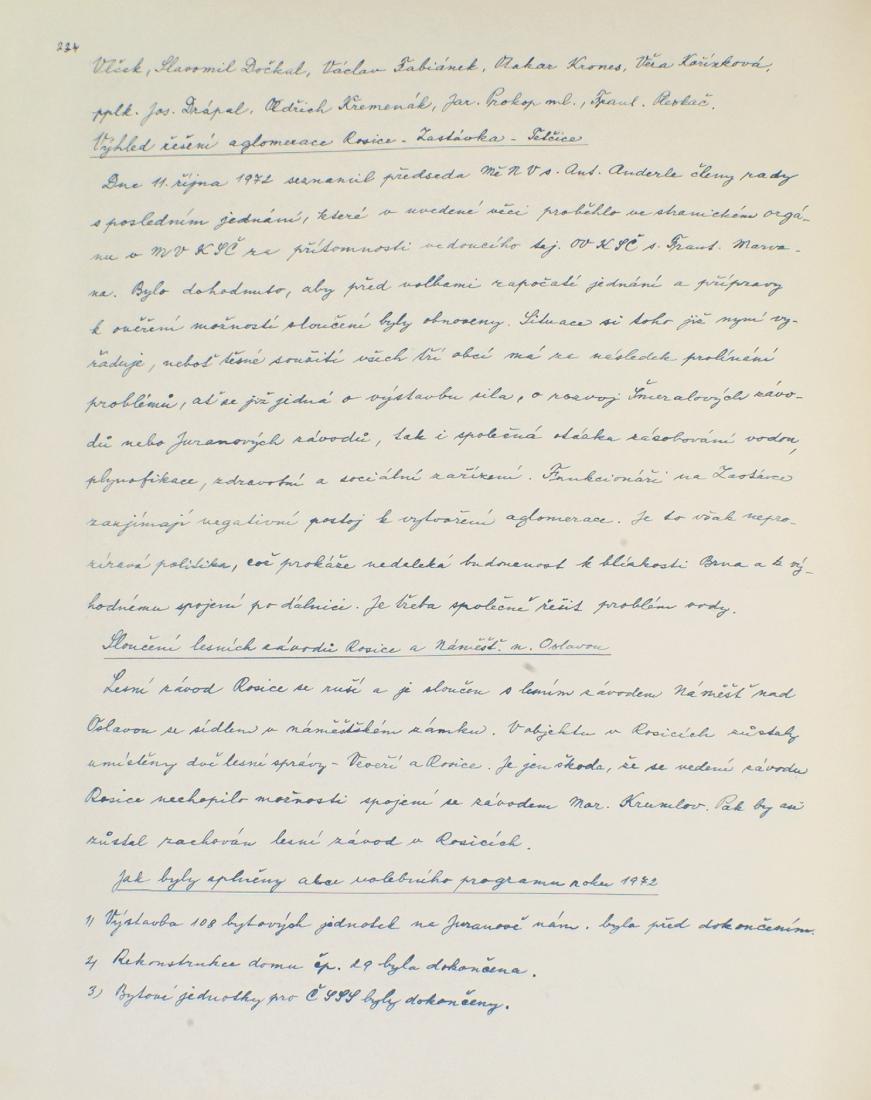 224
Vlček, Slavomil Dočkal, Václav Fabiánek, Otakar Krones, Věra Kořínková,
pplk. Jos. Drápal, Oldřich Křemenák, Jar. Prokop ml., Frant. Revkač.
Výhled řešení aglomerace Rosice - Zastávka - Tetčice
Dne 11. října 1972 seznámil předseda MěNV s. Ant. Anderle členy rady
s posledním jednání, které v uvedené věci proběhlo ve stranickém orgá-
nu v MV KSČ za přítomnosti vedoucího taj. OV KSČ s. Frant. Marva-
na. Bylo dohodnuto, aby před volbami započatí jednání a přípravy
k ověření možností sloučení byly obnoveny. Situace si toho již nyní vy-
žaduje, neboť těsné soužití všech tří obcí má za následek prolínání
problémů, ať se již jedná o výstavbu sila, o rozvoj Šmeralových závo-
dů nebo Juranových závodů, tak i společná otázka zásobování vodou,
plynofikace, zdravotní a sociální zařízení. Funkcionáři na Zastávce
zaujímají negativní postoj k vytvoření aglomerace. Je to však nepro-
zíravá politika, což prokáže nedaleká budoucnost k blízkosti Brna a k vý-
hodnému spojení po dálnici. Je třeba společně řešit problém vody.
Sloučení lesních závodů Rosice a Náměšť. n. Oslavou
Lesní závod Rosice se ruší a je sloučen s lesním závodem Náměšť nad
Oslavou se sídlem v náměšťském zámku. V objektu v Rosicích zůstaly
umístěny dvě lesní správy - Veveří a Rosice. Je jen škoda, že se vedení závodu
Rosice nechopilo možnosti spojení se závodem Mor. Krumlov. Pak by asi
zůstal zachován lesní závod v Rosicích.
Jak byly splněny akce volebního programu roku 1972
1) Výstavba 108 bytových jednotek na Juranově nám. byla před dokončením.
2) Rekonstrukce domu čp. 29 byla dokončena.
3) Bytové jednotky pro ČSSS byly dokončeny.